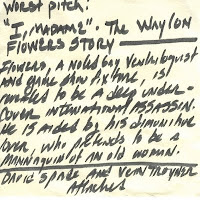 Worst pitch:
"I, MADAME" - The Waylon
Flowers Story
Flowers, a noted gay ventriloquist
and game show fixture, is
revealed to be a deep under-
cover international assassin.
He is aided by his diminutive
lover, who pretends to be a
mannequin of an old woman.
David Spade and Vern Troyer
Attached